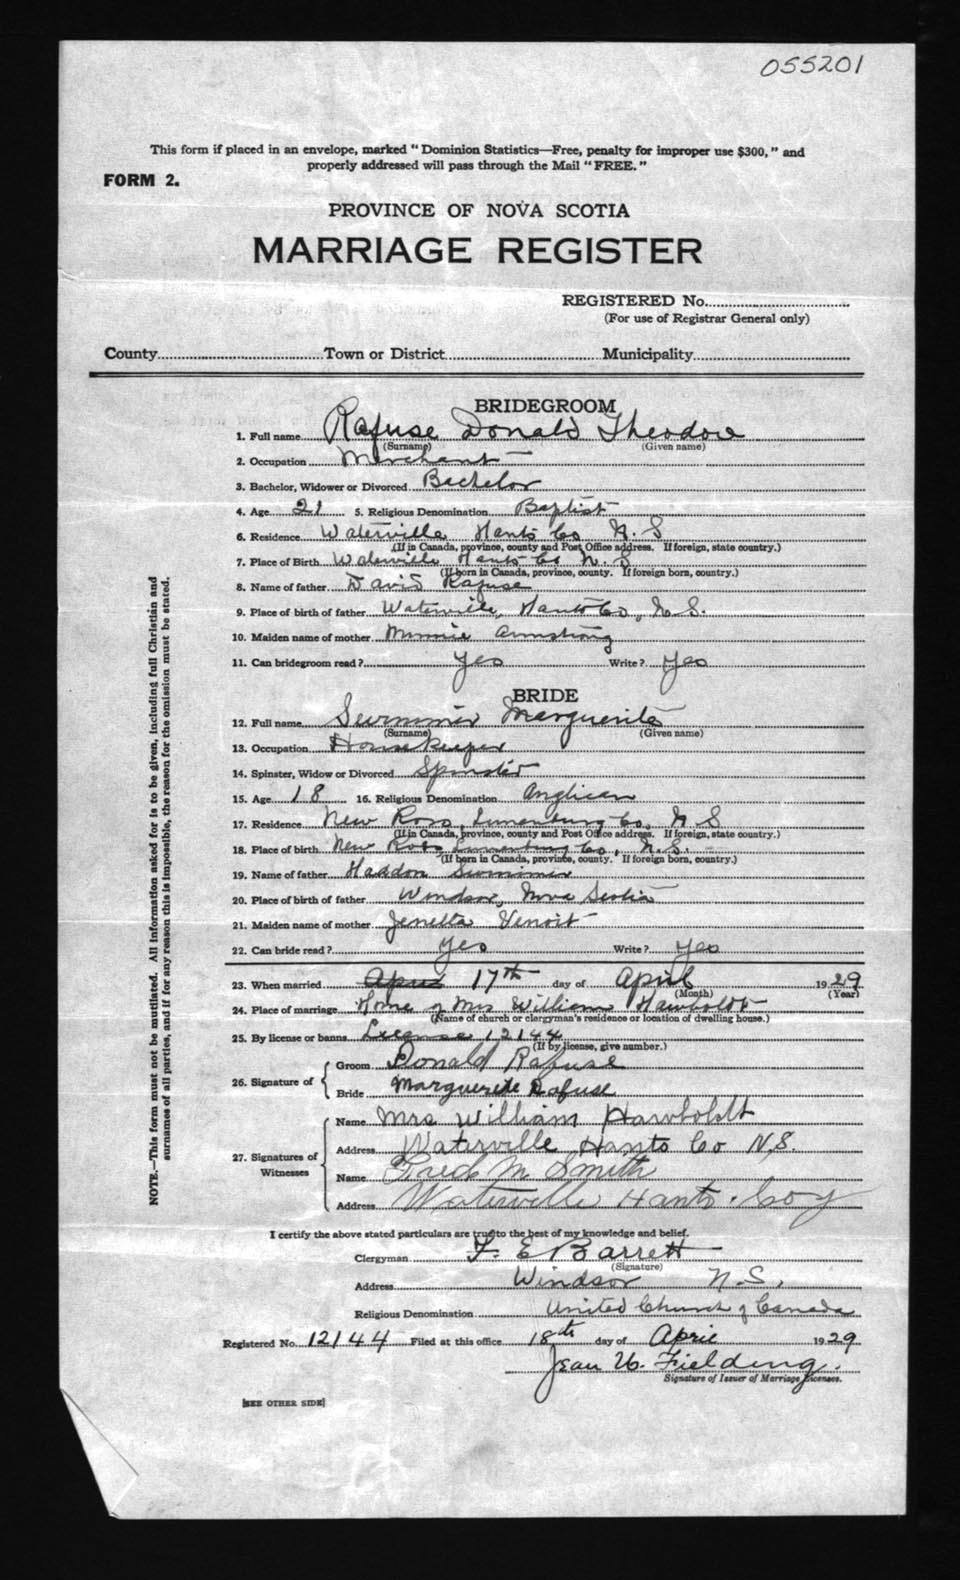 055201
This form if placed in an envelope, marked "Dominion Statistics—Free, penalty for improper use $300," and
properly addressed will pass through the Mail "FREE."
FORM 2.
PROVINCE OF NOVA SCOTIA
MARRIAGE REGISTER
REGISTERED No.
(For use of Registrar General only)
County Town or District Municipality
BRIDEGROOM
1. Full name Rafuse Donald Theodore
(Surname) (Given name)
2. Occupation Merchant
3. Bachelor, Widower or Divorced Bachelor
4. Age 21 5. Religious Denomination Baptist
6. Residence Waterville Hants Co N.S
(If in Canada, province, county and Post Office address. If foreign, state country.)
7. Place of Birth Waterville Hants Co N.S
(If born in Canada, province, county. If foreign born, country.)
8. Name of father David Rafuse
9. Place of birth of father Waterville, Hants Co, N.S.
10. Maiden name of mother Minnie Armstrong
11. Can bridegroom read? Yes Write? Yes
BRIDE
12. Full name Swimmer Marguerite
(Surname) (Given name)
13. Occupation Housekeeper
14. Spinster, Widow or Divorced Spinster
15. Age 18 16. Religious Denomination Anglican
17. Residence New Ross, Lunenburg Co, N S
(If in Canada, province, county and Post Office address. If foreign, state country.)
18. Place of birth New Ross, Lunenburg Co, N.S.
(If born in Canada, province, county. If foreign born, country.)
19. Name of father Haddon Swimmer
20. Place of birth of father Windsor, Nova Scotia
21. Maiden name of mother Jenetta Venoit
22. Can bride read? Yes Write? Yes
23. When married April 17th day of April 1929
(Month) (Year)
24. Place of marriage Home of Mrs William Hawboldt
(Name of church or clergyman's residence or location of dwelling house.)
25. By license or banns License 12144
(If by license, give number.)
26. Signature of Groom Donald Rafuse
Bride Marguerite Rafuse
27. Signatures of Witnesses Name Mrs William Hawboldt
Address Waterville Hants Co N.S.
Name Fred M Smith
Address Waterville Hants. Coy
I certify the above stated particulars are true to the best of my knowledge and belief.
Clergyman F. E Barrett
(Signature)
Address Windsor N.S.
Religious Denomination United Church of Canada
Registered No. 12144 Filed at this office 18th day of April 1929
Jean W. Fielding.
Signature of Issuer of Marriage Licenses.
[SEE OTHER SIDE]
NOTE.—This form must not be mutilated. All information asked for is to be given, including full Christian and
surnames of all parties, and if for any reason this is impossible, the reason for the omission must be stated.